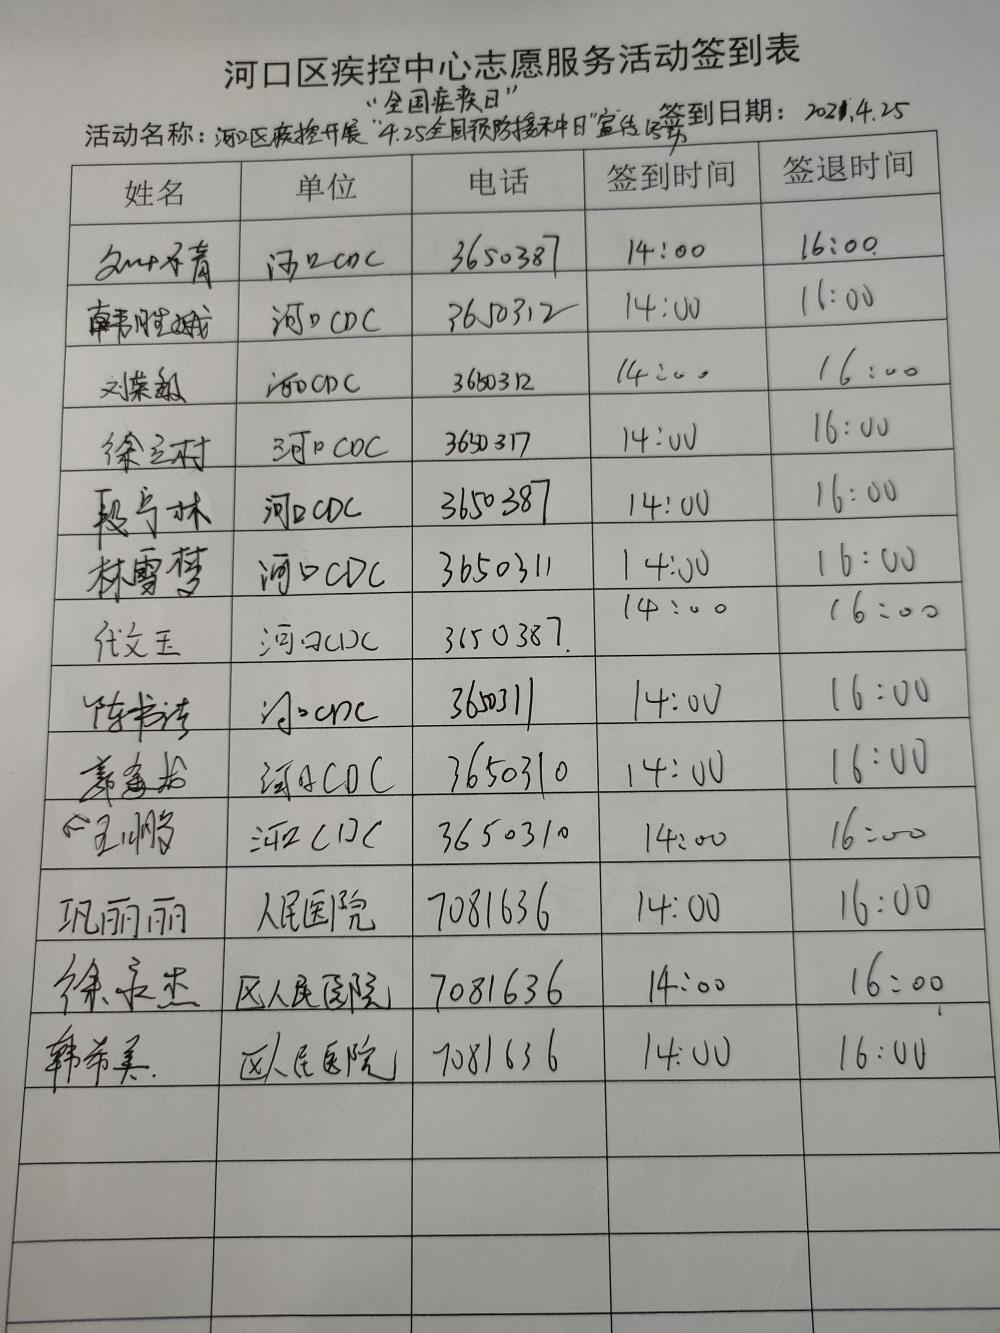 河口区疾控中心志愿服务活动签到表
"全国疟疾日"
活动名称：河口区疾控开展"4.25全国预防接种日"宣传活动 签到日期：2021.4.25
姓名 单位 电话 签到时间 签退时间
河口CDC 3650387 14:00 16:00
韩胜娥 河口CDC 3650312 14:00 16:00
刘荣毅 河口CDC 3650312 14:00 16:00
徐立村 河口CDC 3650317 14:00 16:00
段与林 河口CDC 3650387 14:00 16:00
林雪梦 河口CDC 3650311 14:00 16:00
代文玉 河口CDC 3650387 14:00 16:00
陈书洁 河口CDC 3650311 14:00 16:00
河口CDC 3650310 14:00 16:00
王鹏 河口CDC 3650310 14:00 16:00
巩丽丽 人民医院 7081636 14:00 16:00
徐永杰 区人民医院 7081636 14:00 16:00
韩希美 区人民医院 7081636 14:00 16:00